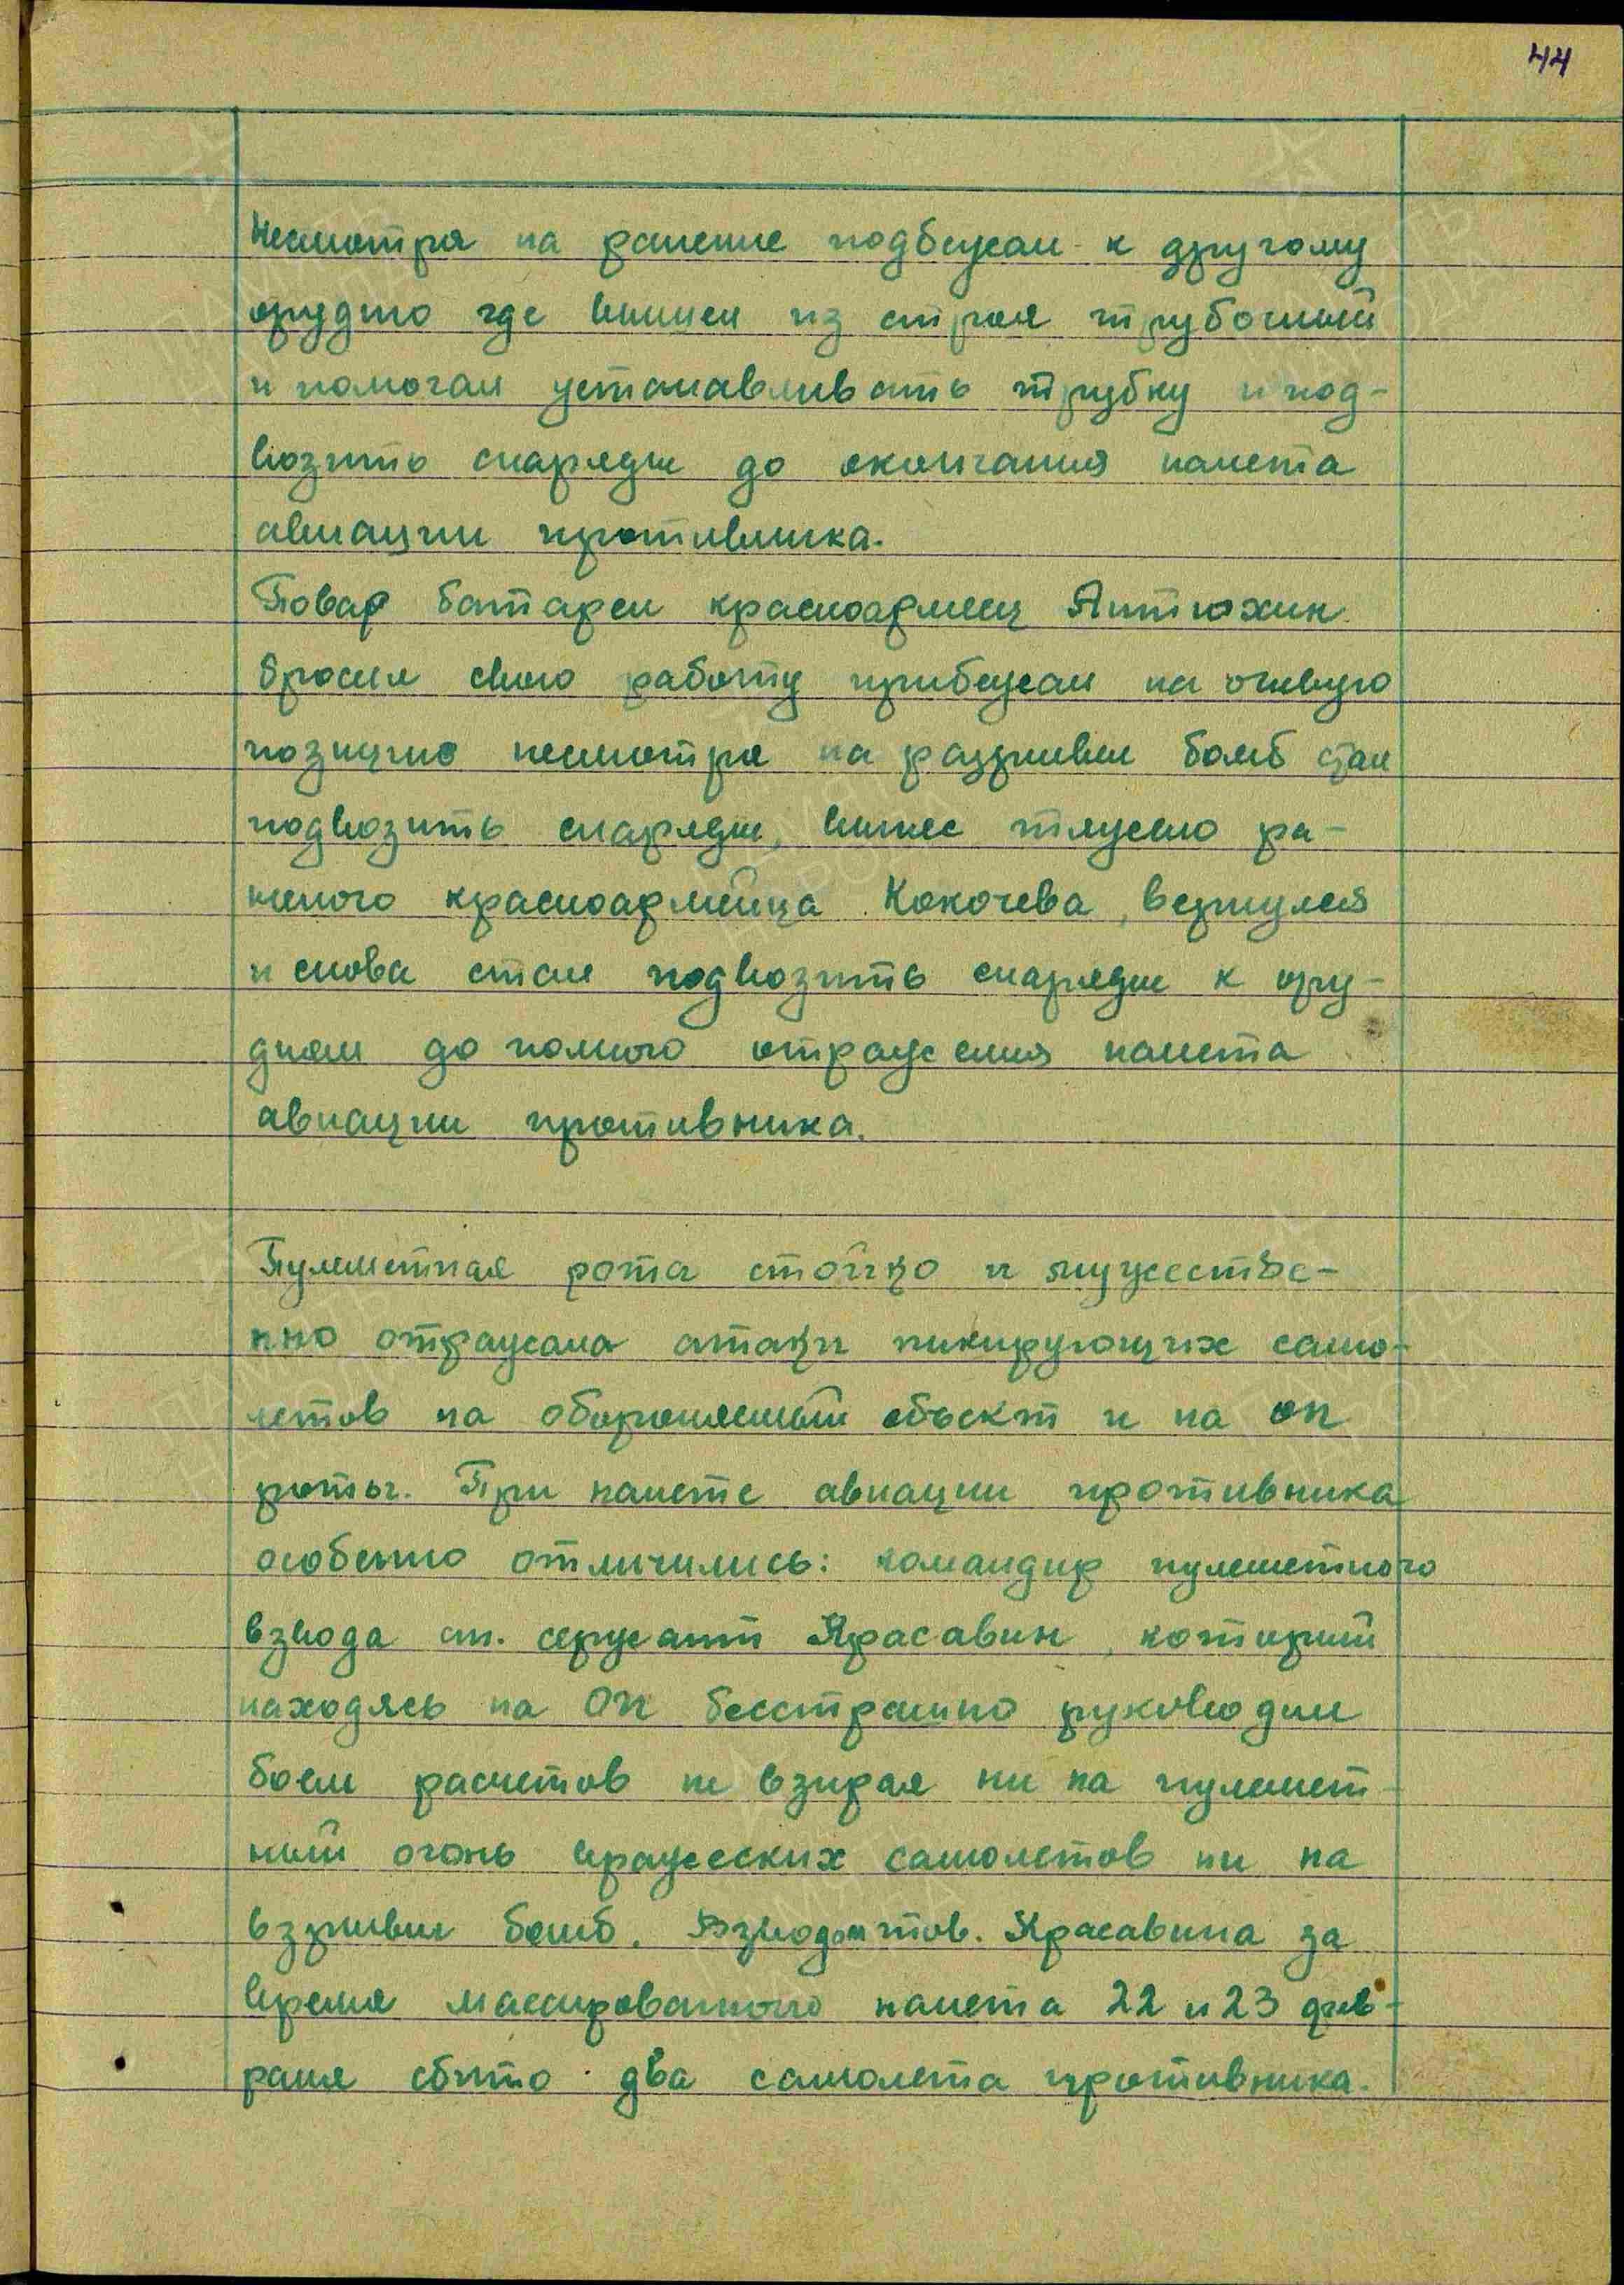 44
Несмотря на ранение подбежал к другому
орудию где вышел из строя трубочный
и помогал устанавливать трубку и под-
возить снаряды до окончания налета
авиации противника.
Повар батареи красноармеец Антюхин
бросил свою работу прибежал на огневую
позицию несмотря на разрывы бомб стал
подвозить снаряды, вынес тяжело ра-
неного красноармейца Кокочева, вернулся
и снова стал подвозить снаряды к ору-
диям до полного отражения налета
авиации противника.
Пулеметная рота стойко и мужестве-
нно отражала атаки пикирующих само-
летов на обороняемый объект и на оп
роты. При налете авиации противника
особенно отличились: командир пулеметного
взвода ст. сержант Красавин, который
находясь на ОП бесстрашно руководил
боем расчетов не взирая ни на пулемет-
ный огонь вражеских самолетов ни на
взрывы бомб. Взводом тов. Красавина за
время массированного налета 22 и 23 фев-
раля сбито два самолета противника.
ПАМЯТЬ
НАРОДА